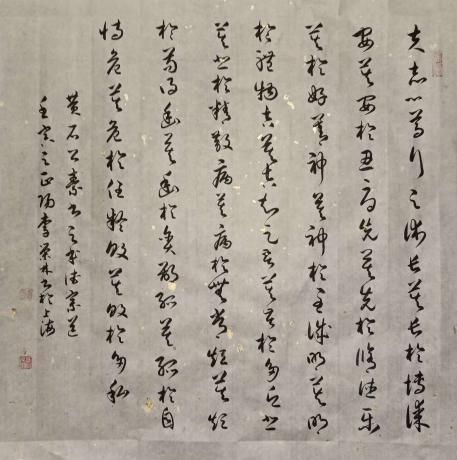 夫志心篤行之術長莫長於博謀
安莫安於忍辱先莫先於修德樂
莫於好善神莫神於至誠明莫明
於體物吉莫吉知足苦莫苦於多願悲
莫悲於精散病莫病於無常短莫短
於苟得幽莫幽於貪鄙孤莫孤於自
恃危莫危於任疑敗莫敗於多私
黄石公素書之本德宗道
壬寅之正陽李林書於上海